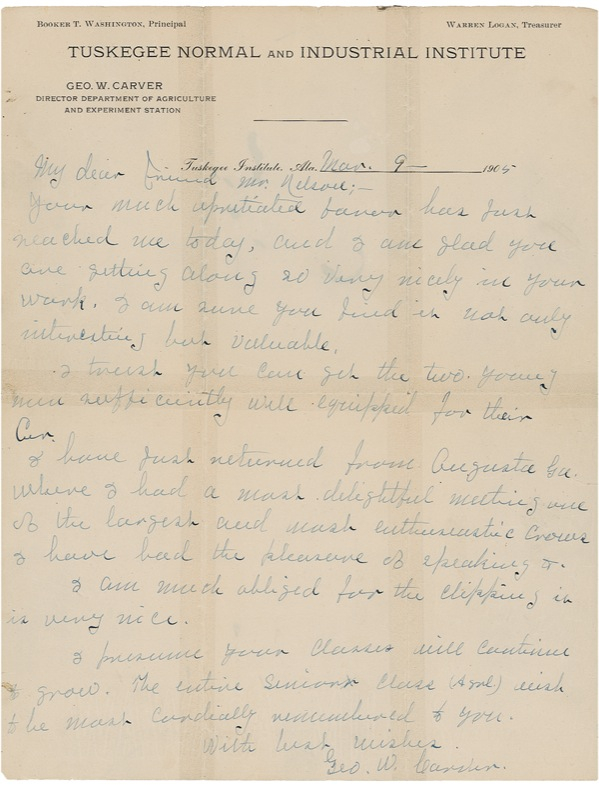 BOOKER T. WASHINGTON, Principal
WARREN LOGAN, Treasurer
TUSKEGEE NORMAL AND INDUSTRIAL INSTITUTE
GEO. W. CARVER
DIRECTOR DEPARTMENT OF AGRICULTURE
AND EXPERIMENT STATION
Tuskegee Institute, Ala. Mar. 9— 1905
My dear friend Mr. Nelson;—
Your much apretiated favor has just
reached me today, and I am glad you
are getting along so very nicely in your
work. I am sure you find it not only
interesting but valuable.
I trust you can get the two young
men sufficiently well equipped for their
I have just returned from Augusta Ga.
where I had a most delightful meeting one
of the largest and most enthusiastic crowds
I have had the pleasure of speaking to.
I am much obliged for the clipping it
is very nice.
I presume your classes will continue
to grow. The entire Senior Class (Agrl.) wish
to be most cordially remembered to you.
With best wishes.
Geo. W. Carver.